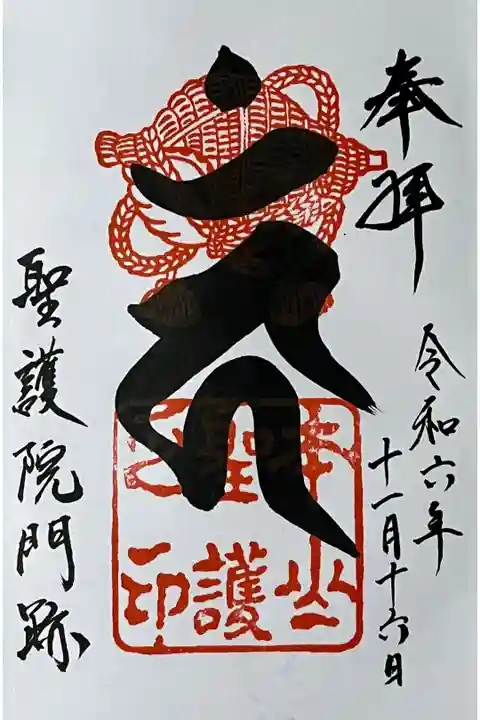 奉拝
令和六年
十一月十六日
本山
聖護
印
聖護院門跡